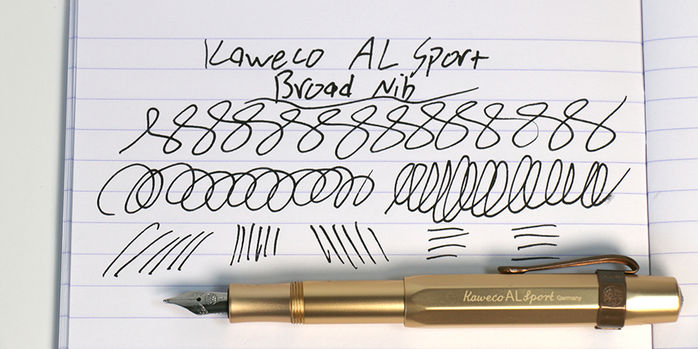 Kaweco AL Sport
Broad Nib
Kaweco AL Sport Germany